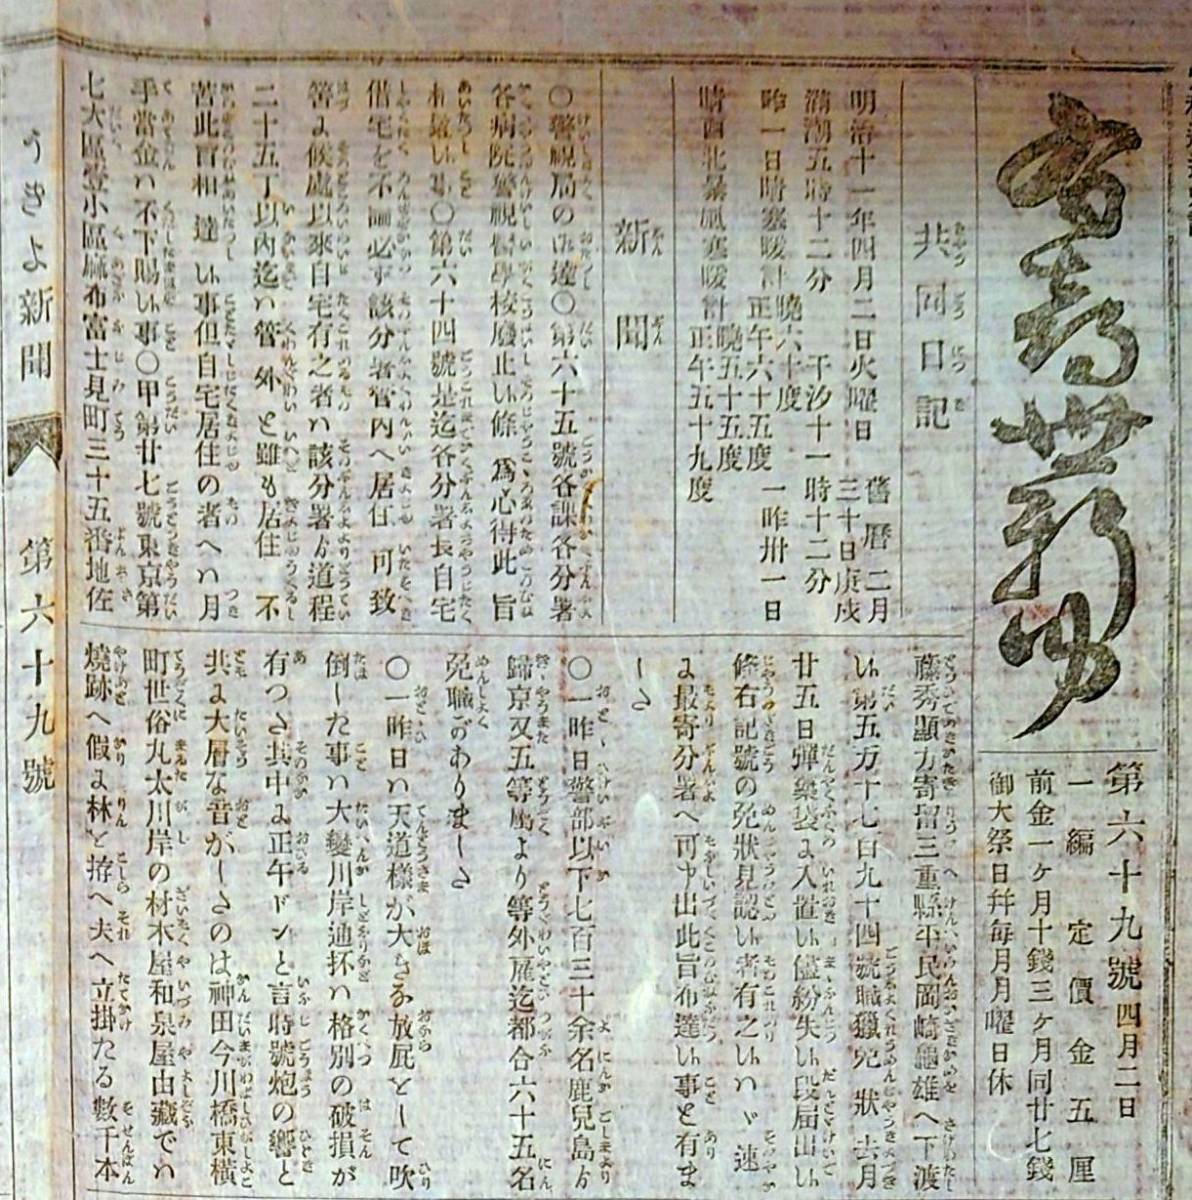 第六十九號四月二日
一編定價金五厘
前金一ヶ月十錢三ヶ月同廿七錢
御大祭日幷每月月曜日休
共同日記
明治十一年四月二日火曜日 舊曆二月三十日庚戌
滿潮五時十二分 干汐十一時十二分
昨一日晴寒暖計 曉六十度 正午六十五度 一昨卅一日
晴西北暴風寒暖計 曉五十五度 正午五十九度
新聞
〇警視局の達〇第六十五號各課各分署
各病院警視醫學校廢止い條爲心得此旨
相達い事〇第六十四號是迄各分署長自宅
借宅を不論必ず該分署管內へ居住可致
筈よ候處以來自宅有之者ハ該分署ゟ道程
二十五丁以內迄ハ管外と雖も居住不
苦此旨相達い事但自宅居住の者へハ月
手當金ハ不下賜い事〇甲第廿七號東京第
七大區壹小區麻布富士見町三十五番地佐
藤秀顯方寄留三重縣平民岡崎龜雄へ下渡
い第五万十七百九十四號職獵免狀去月
廿五日彈藥袋よ入置い儘紛失い段届出い
條右記號の免狀見認い者有之いハヾ速
よ最寄分署へ可申出此旨布達い事と有ま
した
〇一昨日警部以下七百三十余名鹿兒島ゟ
歸京又五等属より等外雇迄都合六十五名
免職がありました
〇一昨日ハ天道樣が大きな放屁をして吹
倒した事ハ大變川岸通抔ハ格別の破損が
有つた其中よ正午ドンと言時號炮の響と
共よ大層な音がしたのは神田今川橋東橫
町世俗九太川岸の材木屋和泉屋由藏でハ
燒跡へ假よ林を拵へ夫へ立掛たる數千本
うきよ新聞 第六十九號